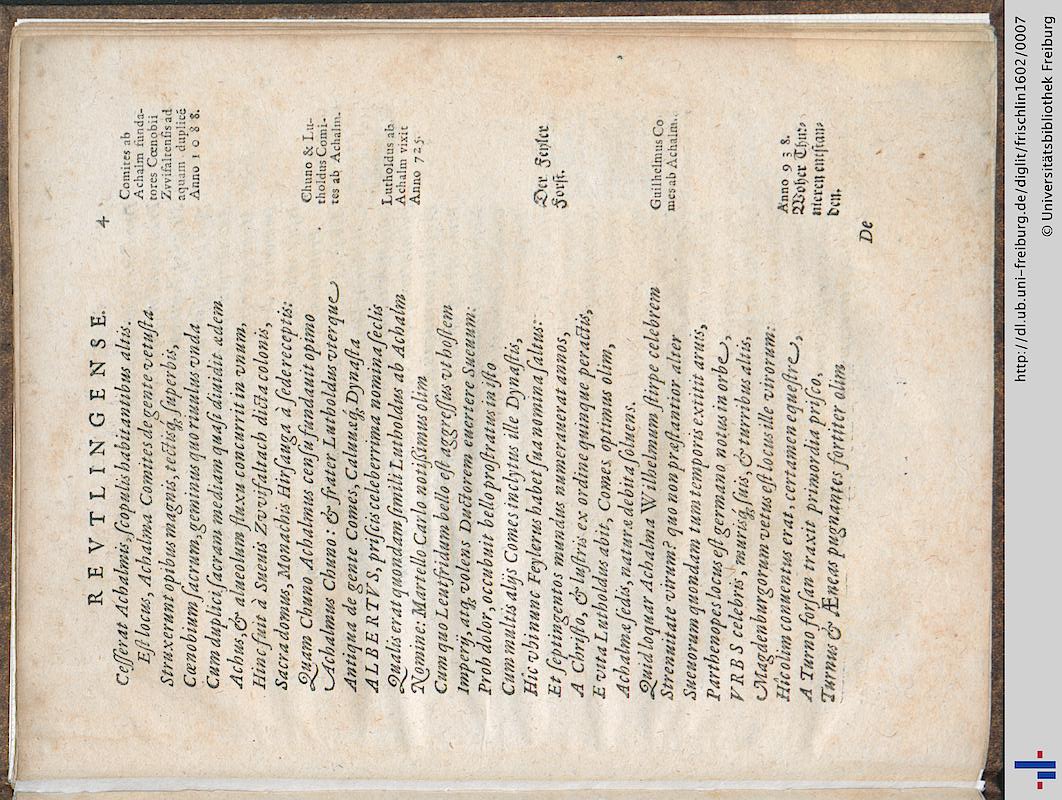 REVTLINGENSE. 4
Cesserat Achalmis, scopulis habitantibus altis.
Est locus, Achalma Comites de gente vetusta
Struxerunt opibus magnis, tectisq́, superbis,
Cœnobium sacrum, geminus quo riuulus vnda
Cum duplici sacram mediam quasi diuidit ædem
Achus, & alueolum fluxa concurrit in vnum,
Hinc fuit à Sueuis Zvvifaltach dicta colonis,
Sacra domus, Monachis Hirsaugâ à sede receptis:
Quam Chuno Achalmus censu fundauit opimo
Achalmus Chuno: & frater Lutholdus vterque
Antiqua de gente Comes, Caluuxq́; Dynasta
ALBERTVS, priscis celeberrima nomina seclis
Qualis erat quondam simili Lutholdus ab Achalm
Nomine: Martello Carlo notissimus olim
Cum quo Leutfridum bello est aggressus vt hostem
Imperij, atq́, volens Ductorem euertere Sueuum:
Proh dolor, occubuit bello prostratus in isto
Cum multis alijs Comes inclytus ille Dynastis,
Hic vbi nunc Feylerus habet sua nomina saltus:
Et septingentos mundus numerauerat annos,
A Christo, & lustris ex ordine quinque peractis,
E vita Lutholdus abit, Comes optimus olim,
Achalmæ sedis, naturæ debita soluens.
Quid loquar Achalma Wilhelmum stirpe celebrem
Strenuitate virum? quo non præstantior alter
Sueuorum quondam tum temporis extitit armis,
Parthenopes locus est germano notus in orbe,
VRBS celebris, murisq́, suis, & turribus altis,
Magdenburgorum vetus est locus ille virorum:
Hic olim conuentus erat, certamen equestre,
A Turno forsan traxit primordia prisco,
Turnus & Æneas pugnantes fortiter olim
De
Comites ab
Achalm funda-
tores Cœnobii
Zvvifaltensis ad
aquam duplicē
Anno 1088.
Chuno & Lu-
tholdus Comi-
tes ab Achalm.
Lutholdus ab
Achalm vixit
Anno 725.
Der Feyler
Forst.
Guilhelmus Co
mes ab Achalm.
Anno 938.
Woher Thur-
nieren entstan-
den.
http://dl.ub.uni-freiburg.de/diglit/frischlin1602/0007
© Universitätsbibliothek Freiburg